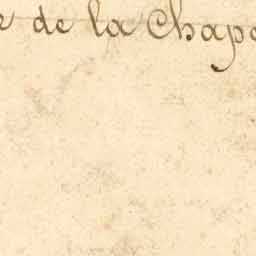 de la Chap